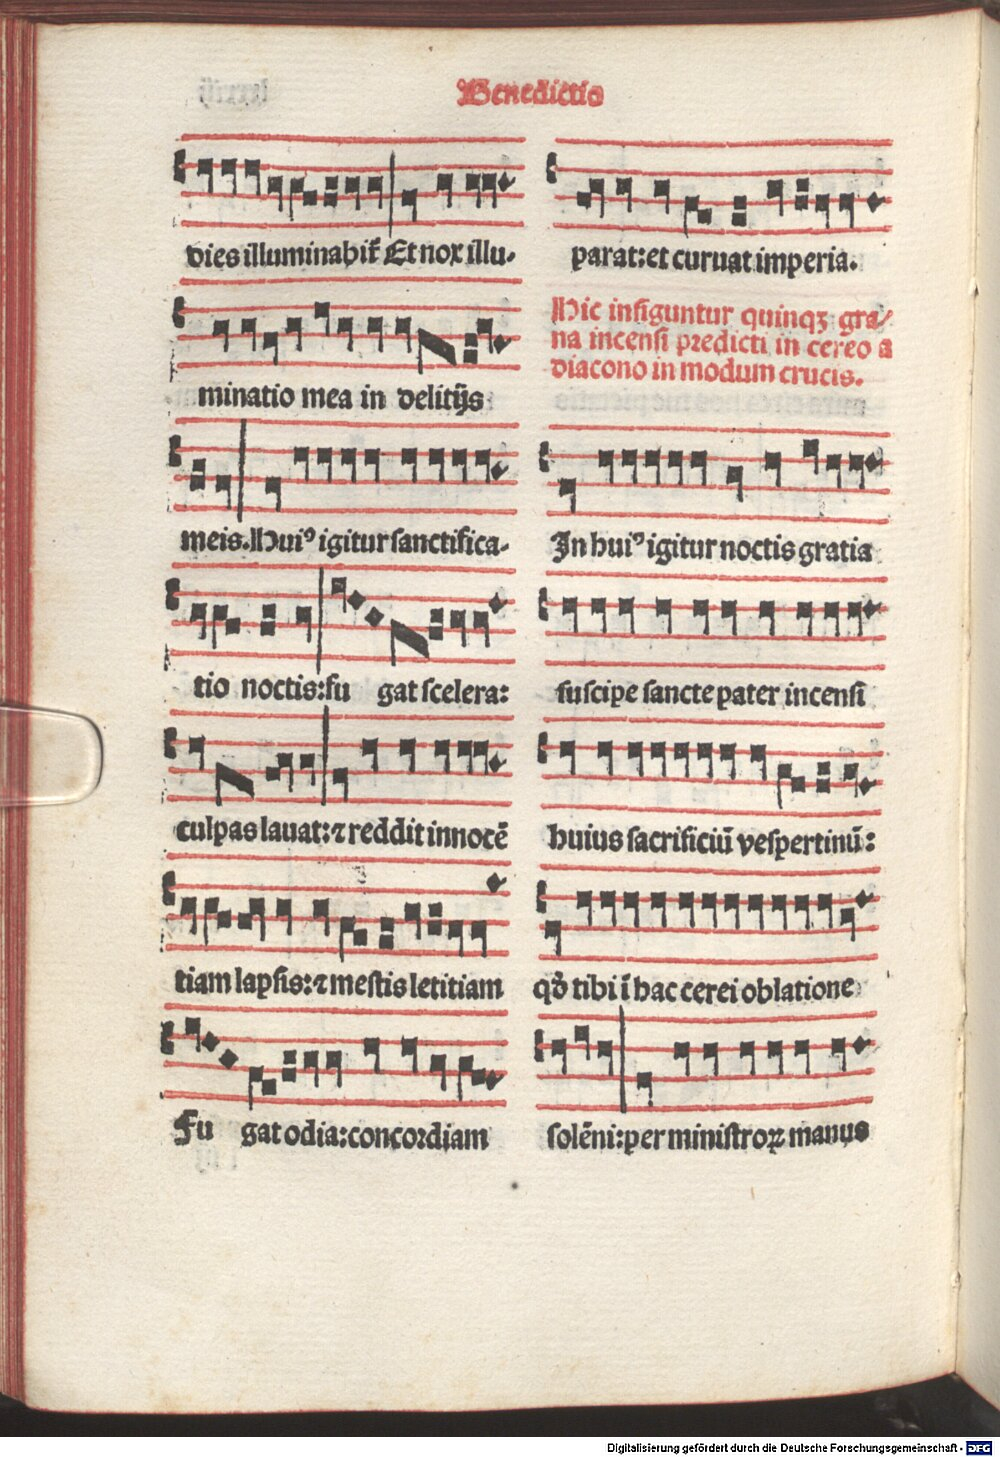 Benedictio
dies illuminabiť Et nox illu-
minatio mea in delitijs
meis. Huiꝰ igitur sanctifica-
tio noctis: fu gat scelera:
culpas lauat: ⁊ reddit innocē
tiam lapsis: ⁊ mestis letitiam
Fu gat odia: concordiam
parat: et curuat imperia.
Hic infiguntur quinqꝫ gra/
na incensi predicti in cereo a
diacono in modum crucis.
In huiꝰ igitur noctis gratia
suscipe sancte pater incensi
huius sacrificiū vespertinū:
qđ tibi ī hac cerei oblatione
solēni: per ministroꝝ manus
Digitalisierung gefördert durch die Deutsche Forschungsgemeinschaft - DFG